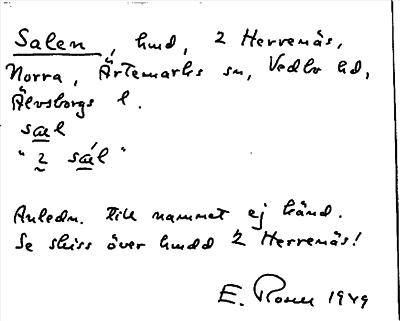 Salen, hmd, 2 Herrenäs,
Norra, Ärtemarks sn, Vedbo hd,
Älvsborgs l.
sæl
"2 sǽl"
Anledn. till namnet ej känd.
Se skiss över hmdd 2 Herrenäs!
E. Rosen 1949